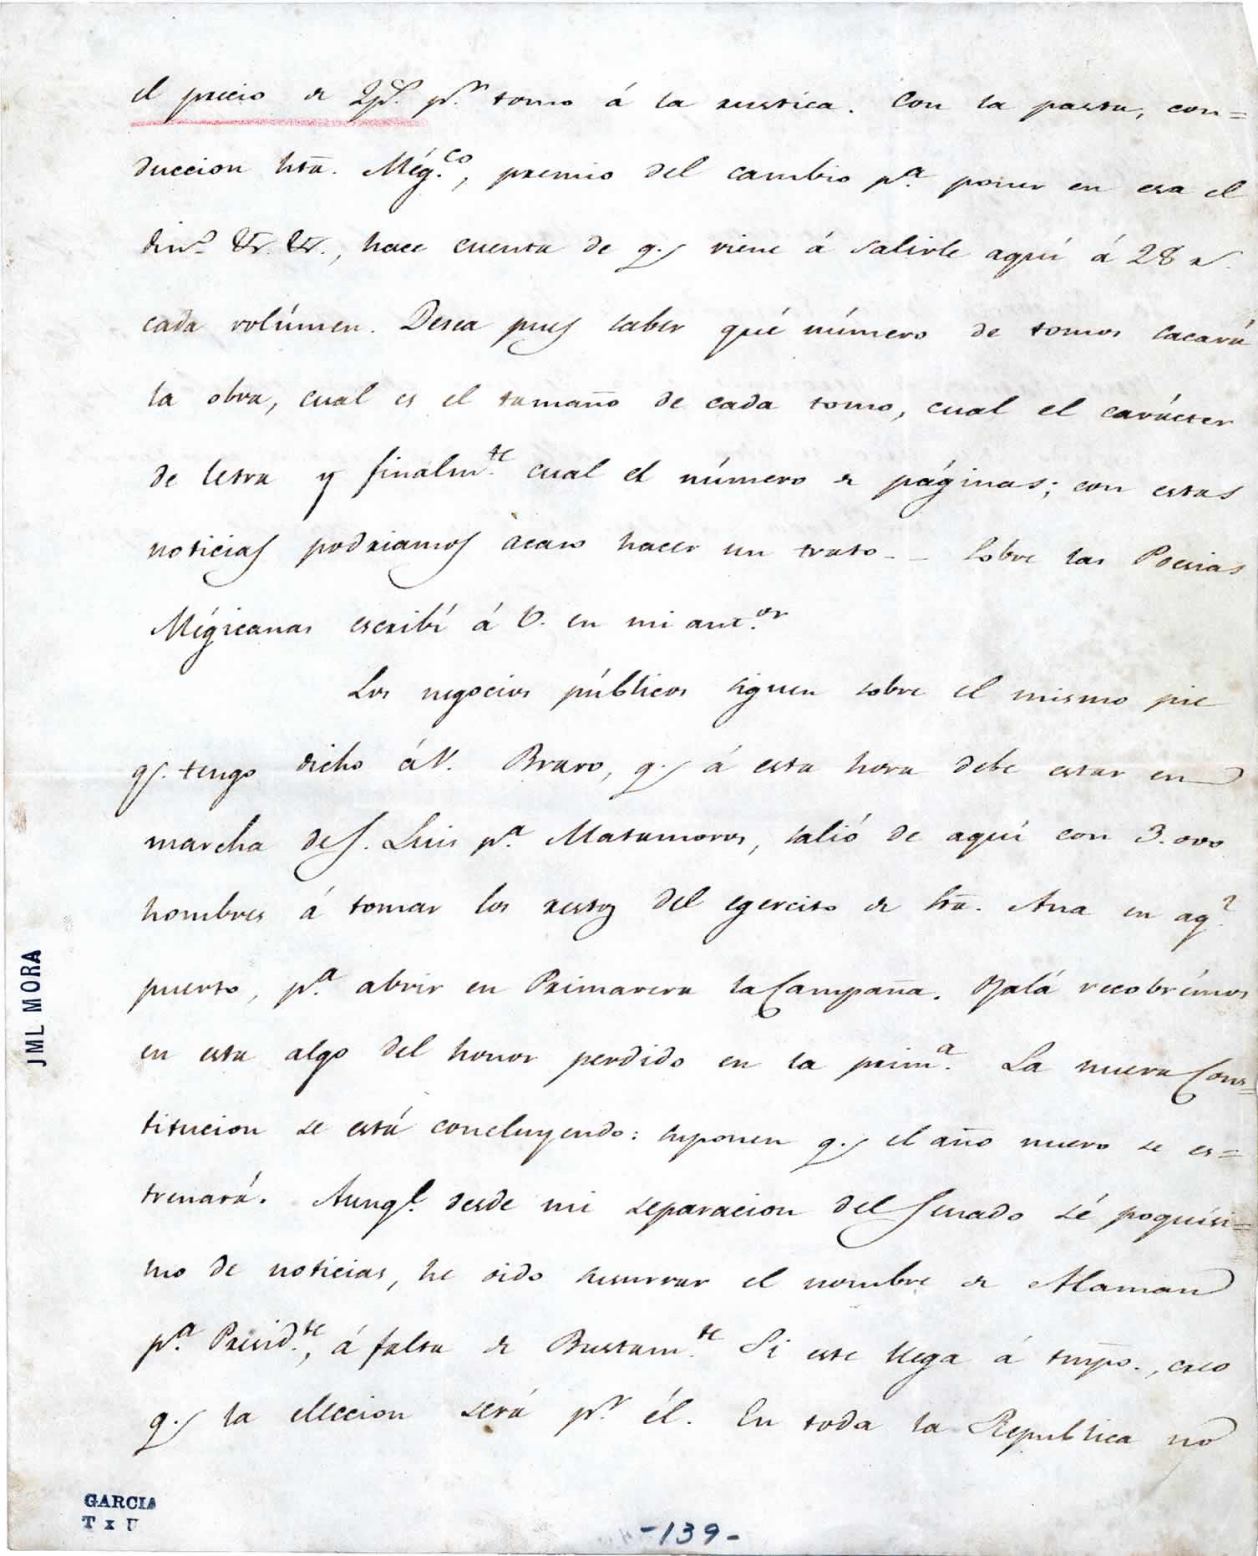 el precio de 2ps. pr. tomo á la rustica. Con la pasta, con=
duccion hta. Még.co, premio del cambio pa. poner en esa el
dino. &. &., hace cuenta de q.e viene á salirle aquí á 28 rs.
cada volúmen. Desea pues saber qué número de tomos sacará
la obra, cual es el tamaño de cada tomo, cual el carácter
de letra y finalm.te cual el número de páginas; con estas
noticias podriamos acaso hacer un trato - - Sobre las Poesias
Mégicanas escribí á V. en mi ant.or
Los negocios públicos siguen sobre el mismo pie
q.e tengo dicho á V. Bravo, q.e á esta hora debe estar en
marcha de S. Luis p.a Matamoros, salió de aquí con 3.000
hombres á tomar los restos del egercito de Sta. Ana en aq.l
puerto, p.a abrir en Primavera la Campaña. Ojalá recobrémos
en esta algo del honor perdido en la prim.a La nueva Cons=
titucion se está concluyendo: suponen q.e el año nuevo se es=
trenará. Aunq.e desde mi separacion del Senado sé poquísi=
mo de noticias, he oido susurrar el nombre de Alaman
p.a Presid.te, á falta de Bustam.te Si este llega á tmpo., creo
q.e la eleccion será p.r él. En toda la Republica no
JML MORA
GARCIA
T x U
-139-